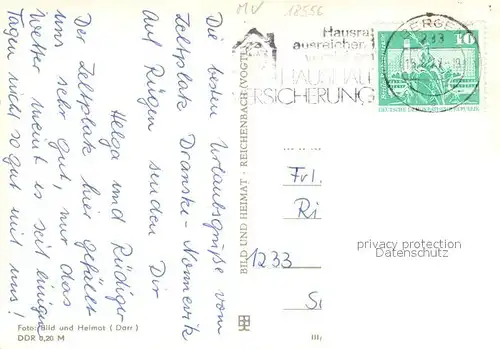 MV 18556
Die besten Urlaubsgrüße vom
Zeltplatz Dranske-Nonnevitz
auf Rügen senden Dir
Helga und Rüdiger
Der Zeltplatz hier gefällt
uns sehr gut, nur das
Wetter meint es seit einigen
Tagen nicht so gut mit uns!
Foto: Bild und Heimat (Darr)
DDR 0,20 M
BILD UND HEIMAT · REICHENBACH (VOGTL
Hausra
ausreichen
HAUSHALT
ERSICHERUNG
BERGEN
233
10
DEUTSCHE DEMOKRATISCHE REPUBLIK
Frl.
Ri
1233
privacy protection
Datenschutz
III/